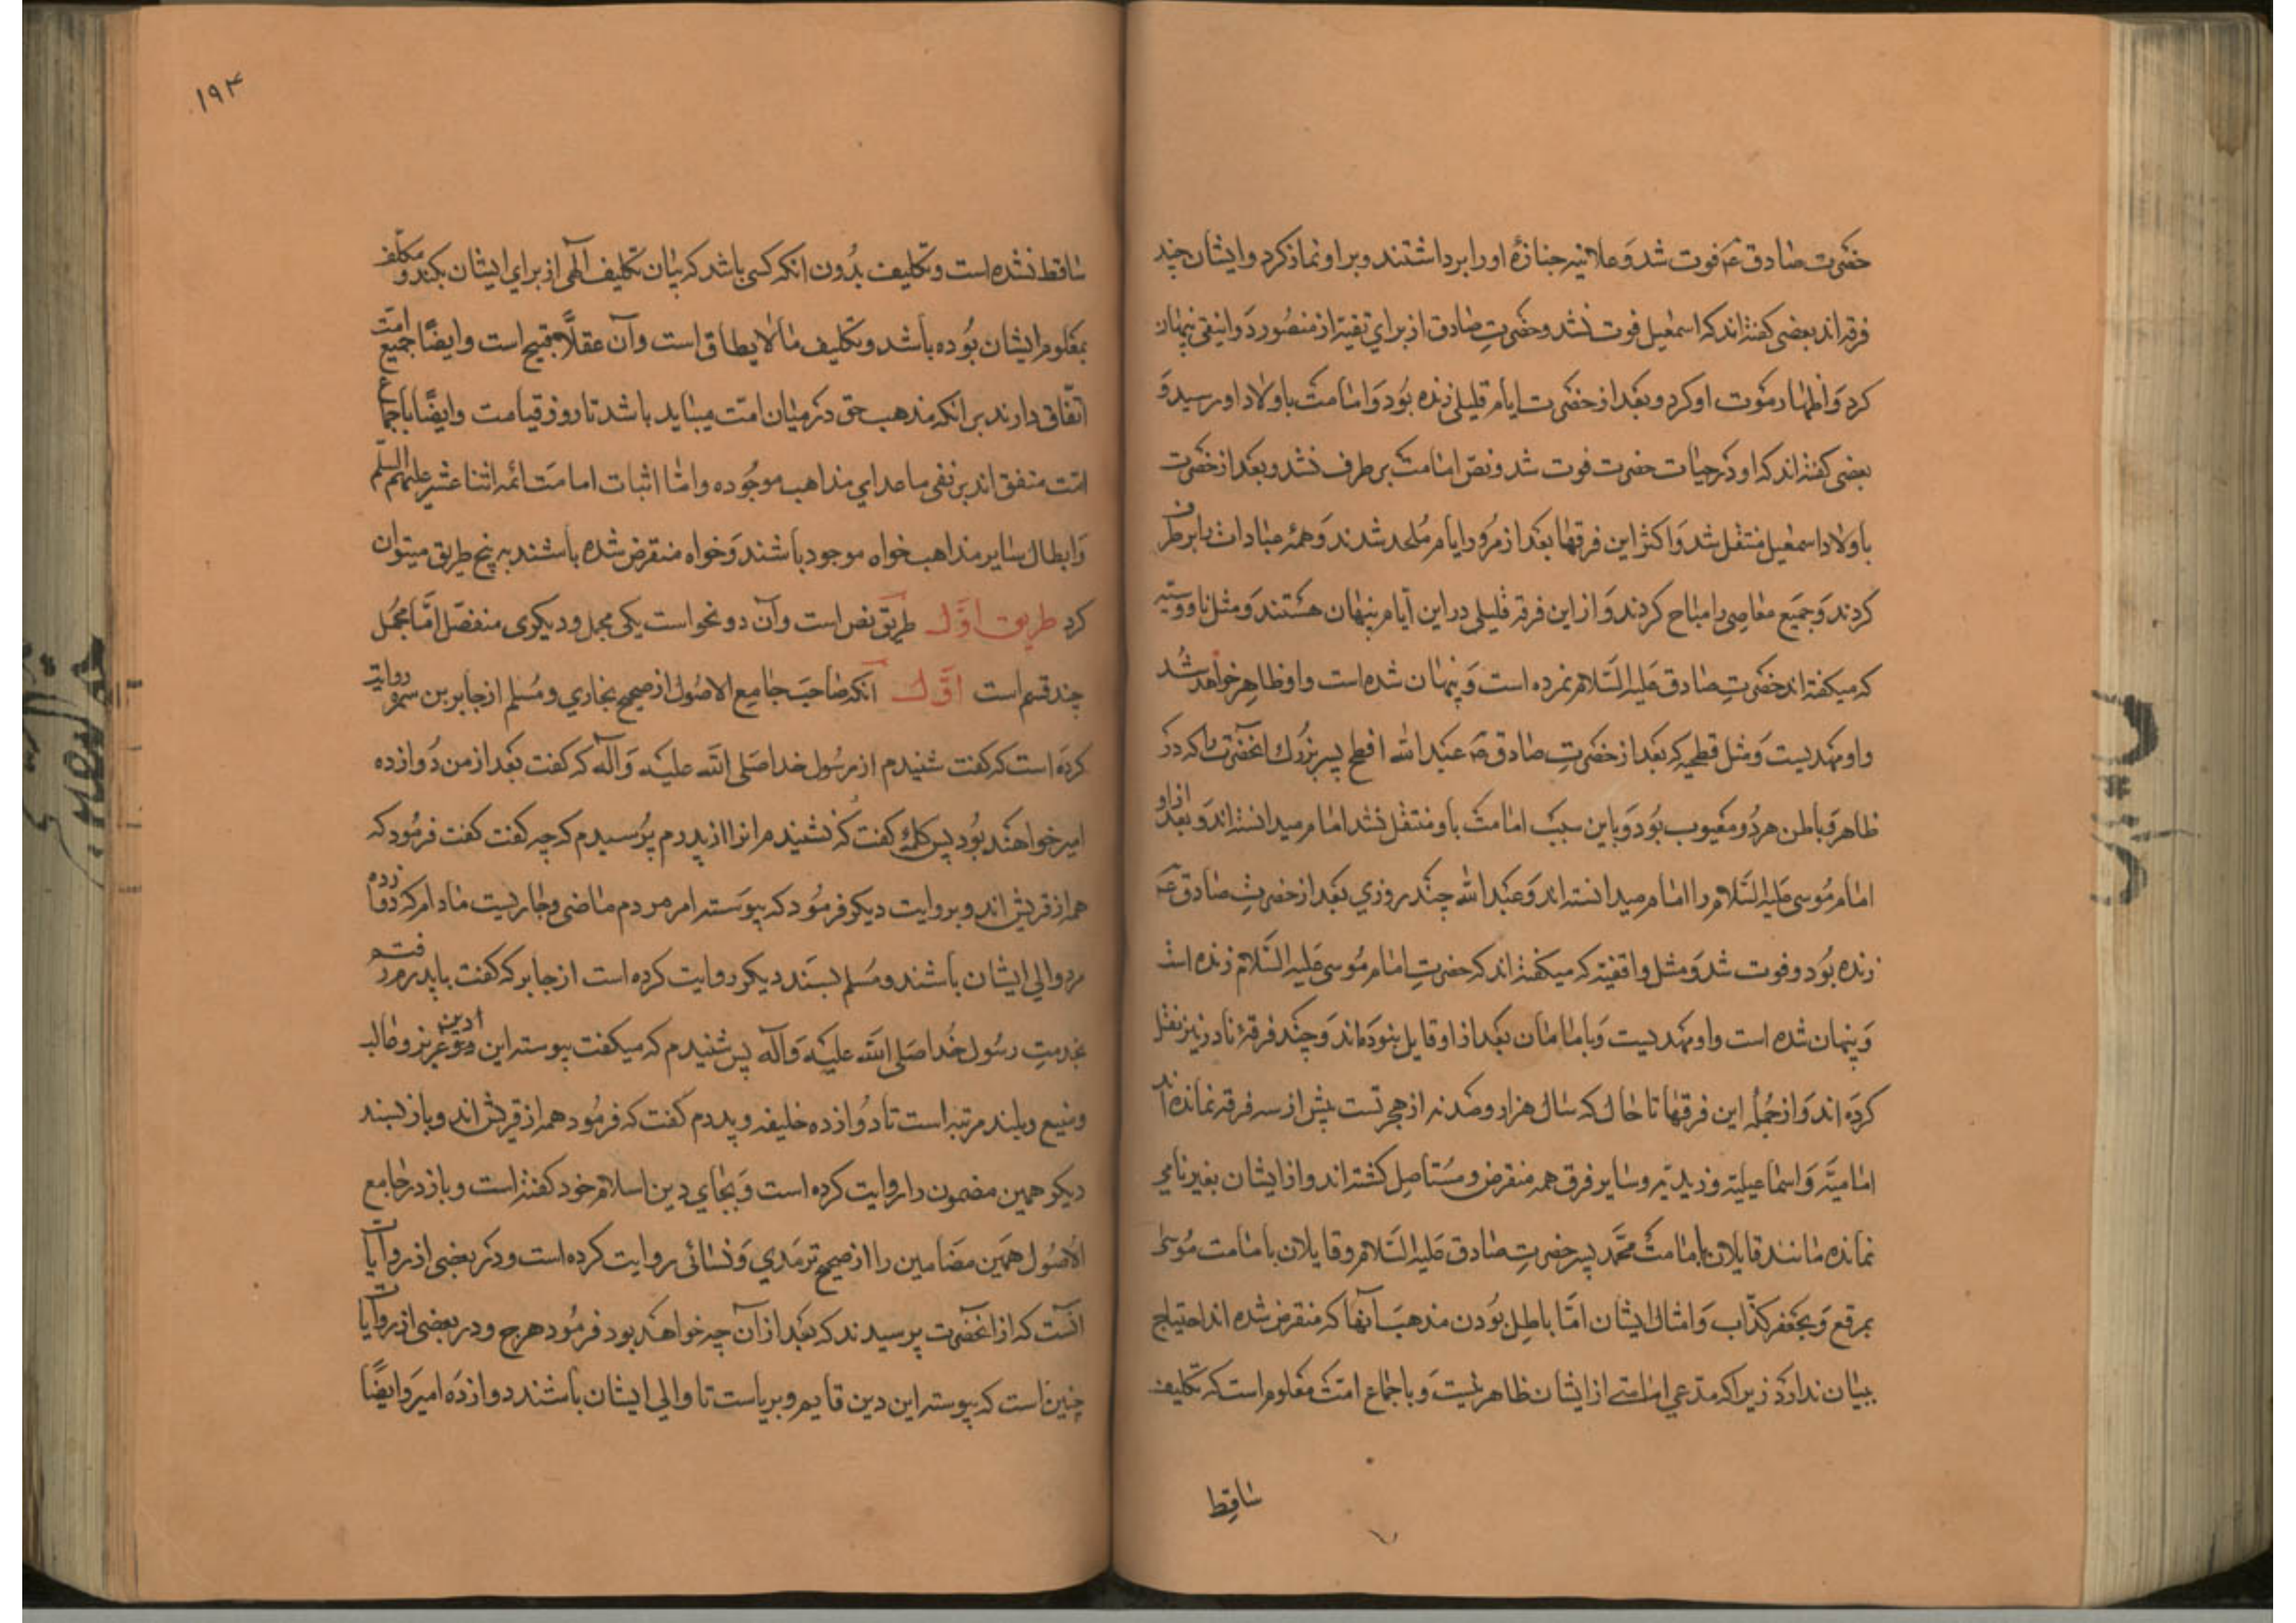 حضرت صادق ع فوت شد و علانیه جنازۀ او را برداشتند و بر او نماز کرد و ایشان چند
فرقه اند بعضی گفته اند که اسمعیل فوت نشد و حضرت صادق از برای تقیه از منصور دوانیقی پنهان
کرد و اظهار موت او کرد و بعد از حضرت ایام قلیلی زنده بود و امامت باولاد او رسید و
بعضی گفته اند که او در حیات حضرت فوت شد و نص امامت بر طرف نشد و بعد از حضرت
باولاد اسمعیل منتقل شد و اکثر این فرقها بعد از مرور ایام ملحد شدند و همۀ عبادات را بر طرف
کردند و جمیع معاصی را مباح کردند و از این فرقه قلیلی در این ایام پنهان هستند و مثل ناووسیه
که میگفته اند حضرت صادق علیه السلام نمرده است و پنهان شده است و او ظاهر خواهد شد
و او مهدیست و مثل فطحیه که بعد از حضرت صادق ع عبد الله افطح پسر بزرك انحضرت را که در
ظاهر و باطن هر دو معیوب بود و باین سبب امامت باو منتقل نشد امام میدانسته اند و بعد از او
امام موسی علیه السلام را امام میدانسته اند و عبد الله چند روزی بعد از حضرت صادق ع
زنده بود و فوت شد و مثل واقفیه که میگفته اند که حضرت امام موسی علیه السلام زنده است
و پنهان شده است و او مهدیست و بامامان بعد از او قایل نبوده اند و چند فرقۀ نادر نیز نقل
کرده اند و از جملۀ این فرقها تا حال که سال هزار و صد و نه از هجرتست بیش از سه فرقه نمانده اند
امامیه و اسماعیلیه و زیدیه و سایر فرق همه منقرض و مستاصل گشته اند و از ایشان بغیر نامی
نمانده مانند قایلان بامامت محمد پسر حضرت صادق علیه السلام و قایلان بامامت موسی
مبرقع و بجعفر کذاب و امثال ایشان اما باطل بودن مذهب آنها که منقرض شده اند احتیاج
ببیان ندارد زیرا که مدعی امامتی از ایشان ظاهر نیست و باجماع امت معلوم است که تکلیف
ساقط
۱۹۴
ساقط نشده است و تکلیف بدون انکه کسی باشد که بیان تکلیف الهی از برای ایشان بکند و مکلف
بمعلوم ایشان بوده باشد و تکلیف ما لا یطاق است و آن عقلاً قبیح است و ایضًا جمیع امت
اتفاق دارند بر انکه مذهب حق در میان امت میباید باشد تا روز قیامت و ایضًا باجماع
امت متفق اند بر نفی ماعدای مذاهب موجوده و اما اثبات امامت ائمه اثنا عشر علیهم السلم
و ابطال سایر مذاهب خواه موجود باشند و خواه منقرض شده باشند به پنج طریق میتوان
کرد طریق اوّل طریق نص است و آن دو نحو است یکی مجمل و دیکری منفصّل امّا مجمل
چند قسم است اوّل آنکه صاحب جامع الاصول از صحیح بخاری و مسلم از جابر بن سمره روایت
کرده است که گفت شنیدم از رسول خدا صلی الله علیه و آله که گفت بعد از من دوازده
امیر خواهند بود پس کلمۀ گفت که نشنیدم انرا از پدرم پرسیدم که چه گفت گفت فرمود که
همه از قریش اند و بروایت دیکر فرمود که پیوسته امر مردم ماضی و جاریست مادام که دوازده
مرد والی ایشان باشند و مسلم بسند دیکر روایت کرده است از جابر که گفت با پدرم رفتم
بخدمت رسول خدا صلی الله علیه و آله پس شنیدم که میکفت پیوسته این دین عزیز و غالب
و منیع و بلند مرتبه است تا دوازده خلیفه و پدرم گفت که فرمود همه از قریش اند و باز بسند
دیکر همین مضمون را روایت کرده است و بجای دین اسلام خود گفته است و باز در جامع
الاصول همین مضامین را از صحیح ترمذی و نسائی روایت کرده است و در بعضی از روایات
انست که از انحضرت پرسیدند که بعد از آن چه خواهد بود فرمود هرج و در بعضی از روایات
چنین است که پیوسته این دین قایم و برپاست تا والی ایشان باشند دوازده امیر و ایضًا